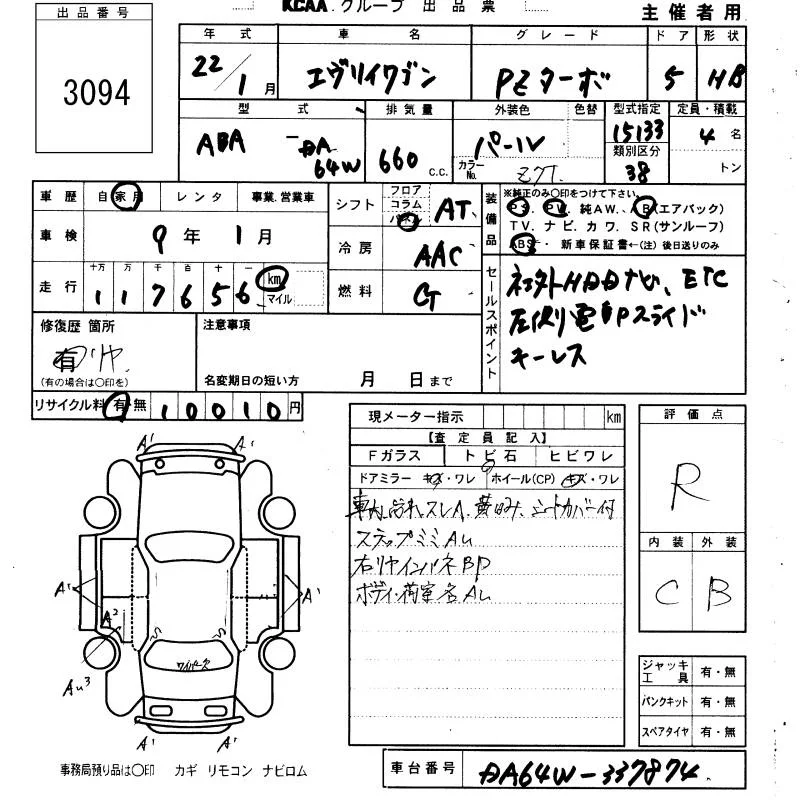 KCAA.グループ 出品票
主催者用
出品番号
3094
年式 車名 グレード ドア 形状
22/1月 エヴリイワゴン PZターボ 5 HB
型式 排気量 外装色 色替 型式指定 定員・積載
ABA-DA64W 660 C.C. パール 15133 4名
カラーNo. Z7T 類別区分 38 トン
車歴 自家用 レンタ 事業.営業車
車検 9年1月
走行 十万 万 千 百 十 一
117656 km マイル
シフト フロア コラム パネル AT
冷房 AAC
燃料 G
装備品 ※純正のみ〇印をつけて下さい。
PS. PW. 純AW. AB(エアバック)
TV. ナビ. カワ. SR(サンルーフ)
ABS・ 新車保証書←(注)後日送りのみ
セールスポイント
ネエ外HDDナビ、ETC
左側電動Pスライド
キーレス
修復歴 箇所
有 リヤ
(有の場合は〇印を)
注意事項
名変期日の短い方 月 日まで
リサイクル料 有・無 10010円
現メーター指示 km
【査定員記入】
Fガラス トビ石 ヒビワレ
ドアミラー キズ・ワレ ホイール(CP) キズ・ワレ
車内汚れスレA、黄ばみ、シートカバー付
ステップミミAu
右リヤインパネBP
ボディ・荷室各Au
評価点
R
内装 外装
C B
ジャッキ工具 有・無
パンクキット 有・無
スペアタイヤ 有・無
A' A'
A' A'
A²
Au³
ワイパーキズ
A' A'
事務局預り品は〇印 カギ リモコン ナビロム
車台番号 DA64W-337874